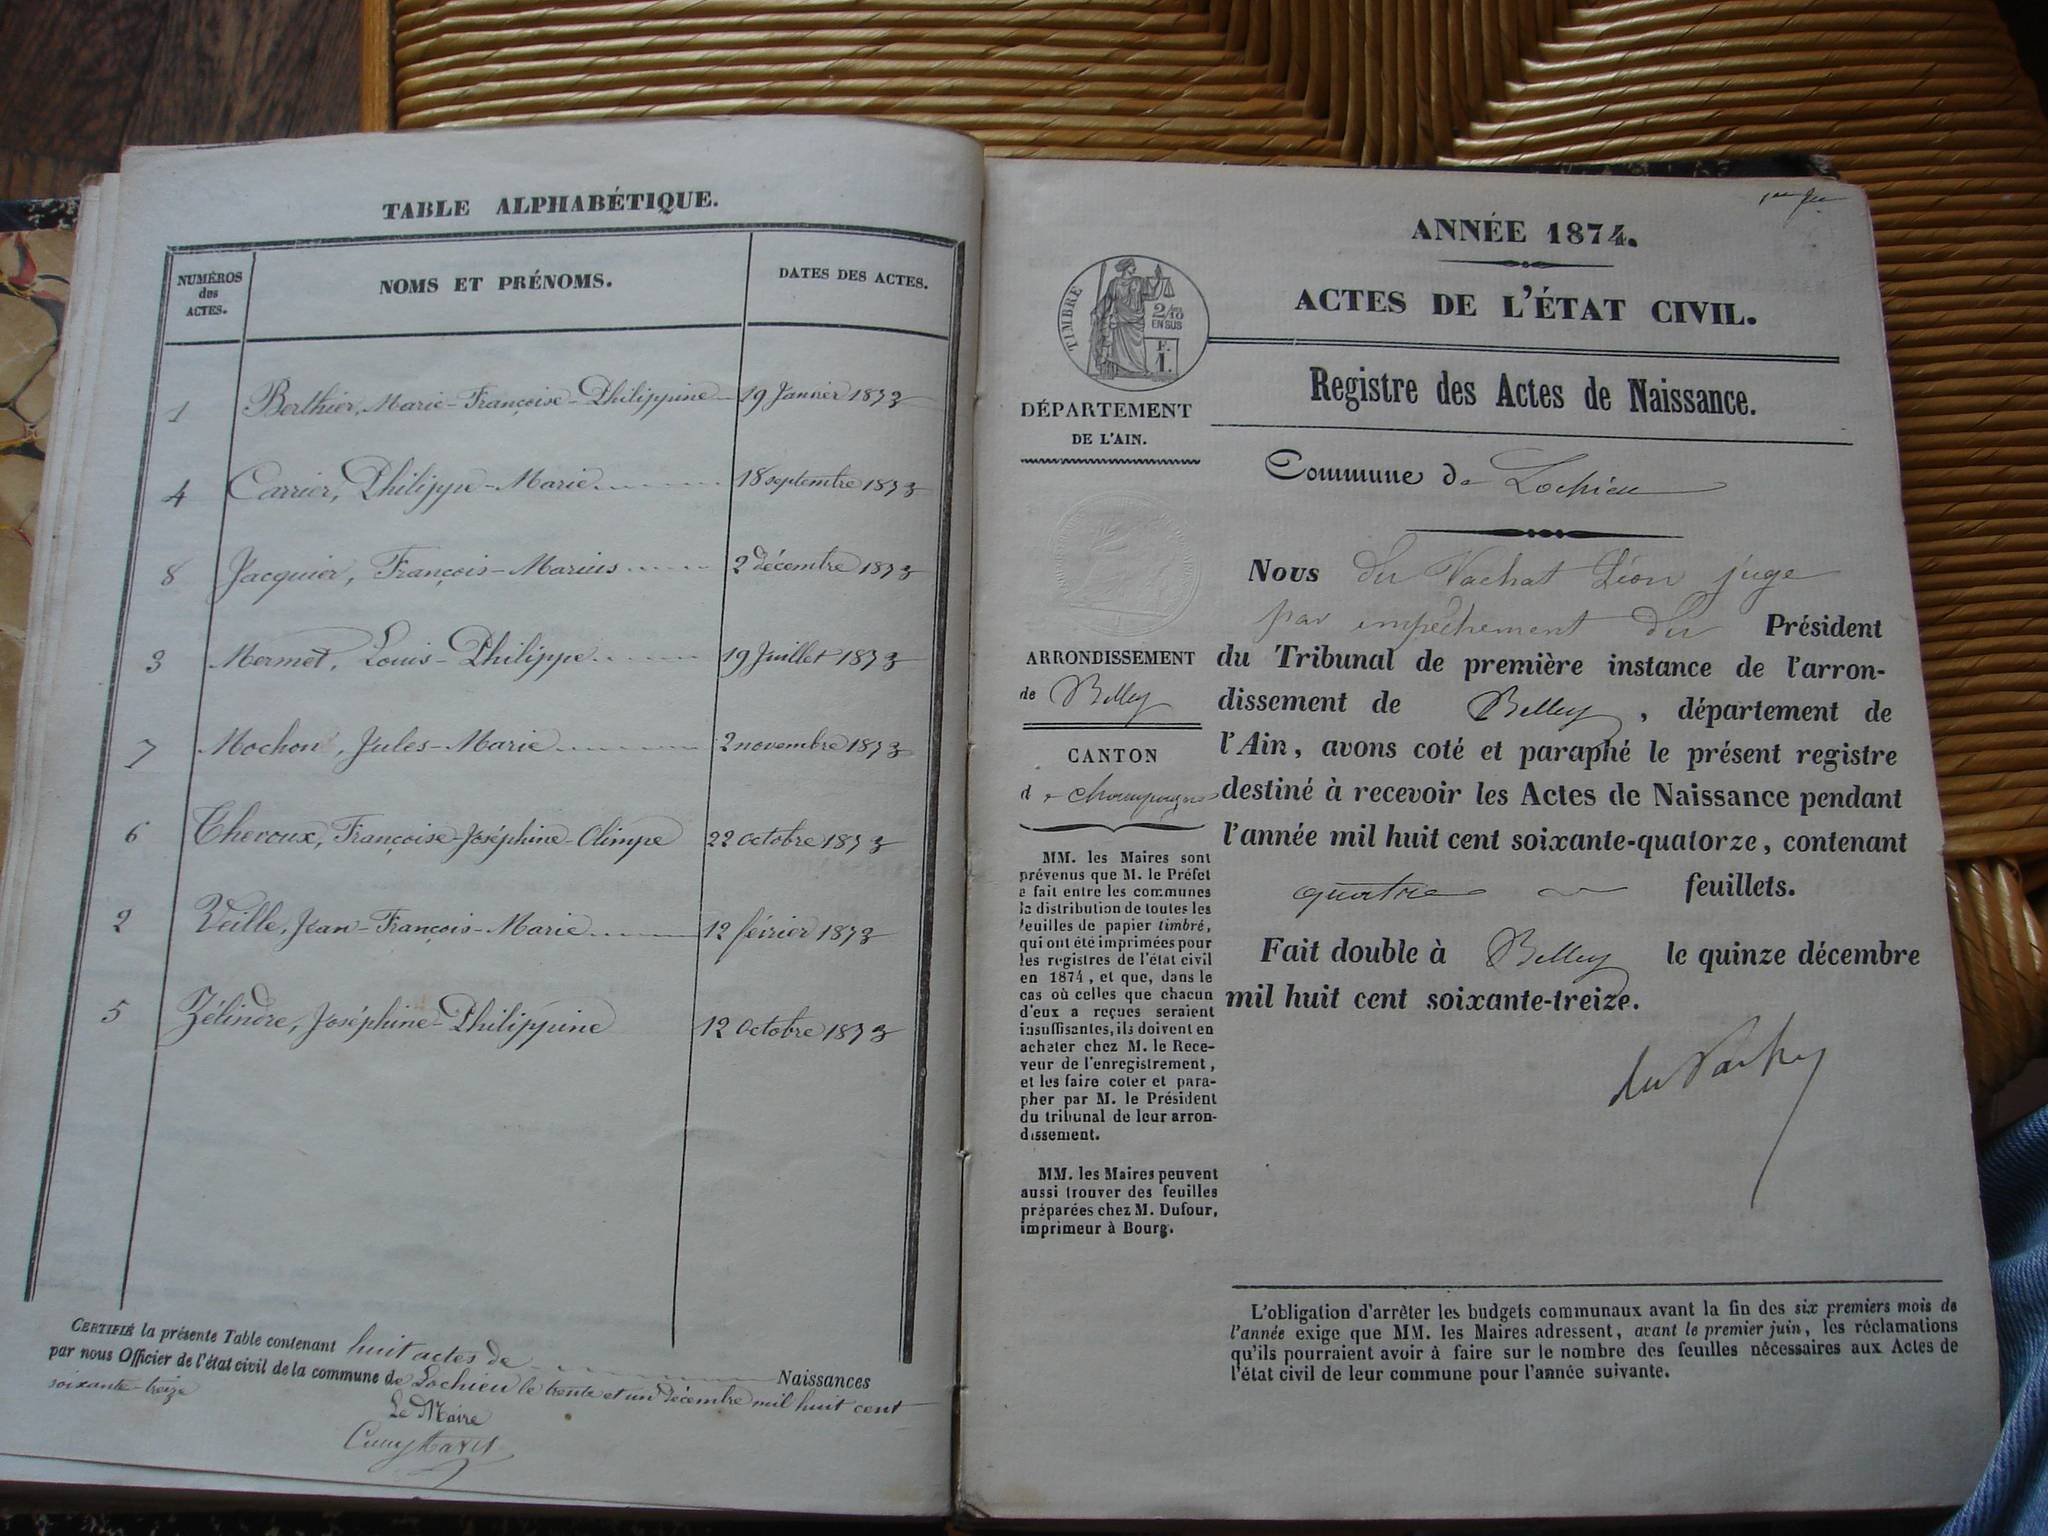 TABLE ALPHABÉTIQUE.
NUMÉROS
des
ACTES.
NOMS ET PRÉNOMS.
DATES DES ACTES.
1 Berthier, Marie-Françoise-Philippine 19 Janvier 1873
4 Carrier, Philippe-Marie 18 septembre 1873
8 Jacquier, François-Marius 2 décembre 1873
3 Mermet, Louis-Philippe 19 Juillet 1873
7 Mochon, Jules-Marie 2 novembre 1873
6 Thevoux, Françoise-Joséphine-Olimpe 22 octobre 1873
2 Veille, Jean-François-Marie 12 février 1873
5 Zélindre, Joséphine-Philippine 12 octobre 1873
CERTIFIÉ la présente Table contenant huit actes de Naissances
par nous Officier de l'état civil de la commune de Lochieu le trente et un décembre mil huit cent
soixante-treize
Le Maire
ANNÉE 1874.
ACTES DE L'ÉTAT CIVIL.
TIMBRE
2/10
EN SUS
F.
1.
Registre des Actes de Naissance.
DÉPARTEMENT
DE L'AIN.
Commune de Lochieu
ARRONDISSEMENT
de Belley
CANTON
de Champagne
MM. les Maires sont
prévenus que M. le Préfet
a fait entre les communes
la distribution de toutes les
feuilles de papier timbré,
qui ont été imprimées pour
les registres de l'état civil
en 1874, et que, dans le
cas où celles que chacun
d'eux a reçues seraient
insuffisantes, ils doivent en
acheter chez M. le Rece-
veur de l'enregistrement,
et les faire coter et para-
pher par M. le Président
du tribunal de leur arron-
dissement.
MM. les Maires peuvent
aussi trouver des feuilles
préparées chez M. Dufour,
imprimeur à Bourg.
Nous du Vachat Léon juge
par empêchement du Président
du Tribunal de première instance de l'arron-
dissement de Belley, département de
l'Ain, avons coté et paraphé le présent registre
destiné à recevoir les Actes de Naissance pendant
l'année mil huit cent soixante-quatorze, contenant
quatre feuillets.
Fait double à Belley le quinze décembre
mil huit cent soixante-treize.
L'obligation d'arrêter les budgets communaux avant la fin des six premiers mois de
l'année exige que MM. les Maires adressent, avant le premier juin, les réclamations
qu'ils pourraient avoir à faire sur le nombre des feuilles nécessaires aux Actes de
l'état civil de leur commune pour l'année suivante.